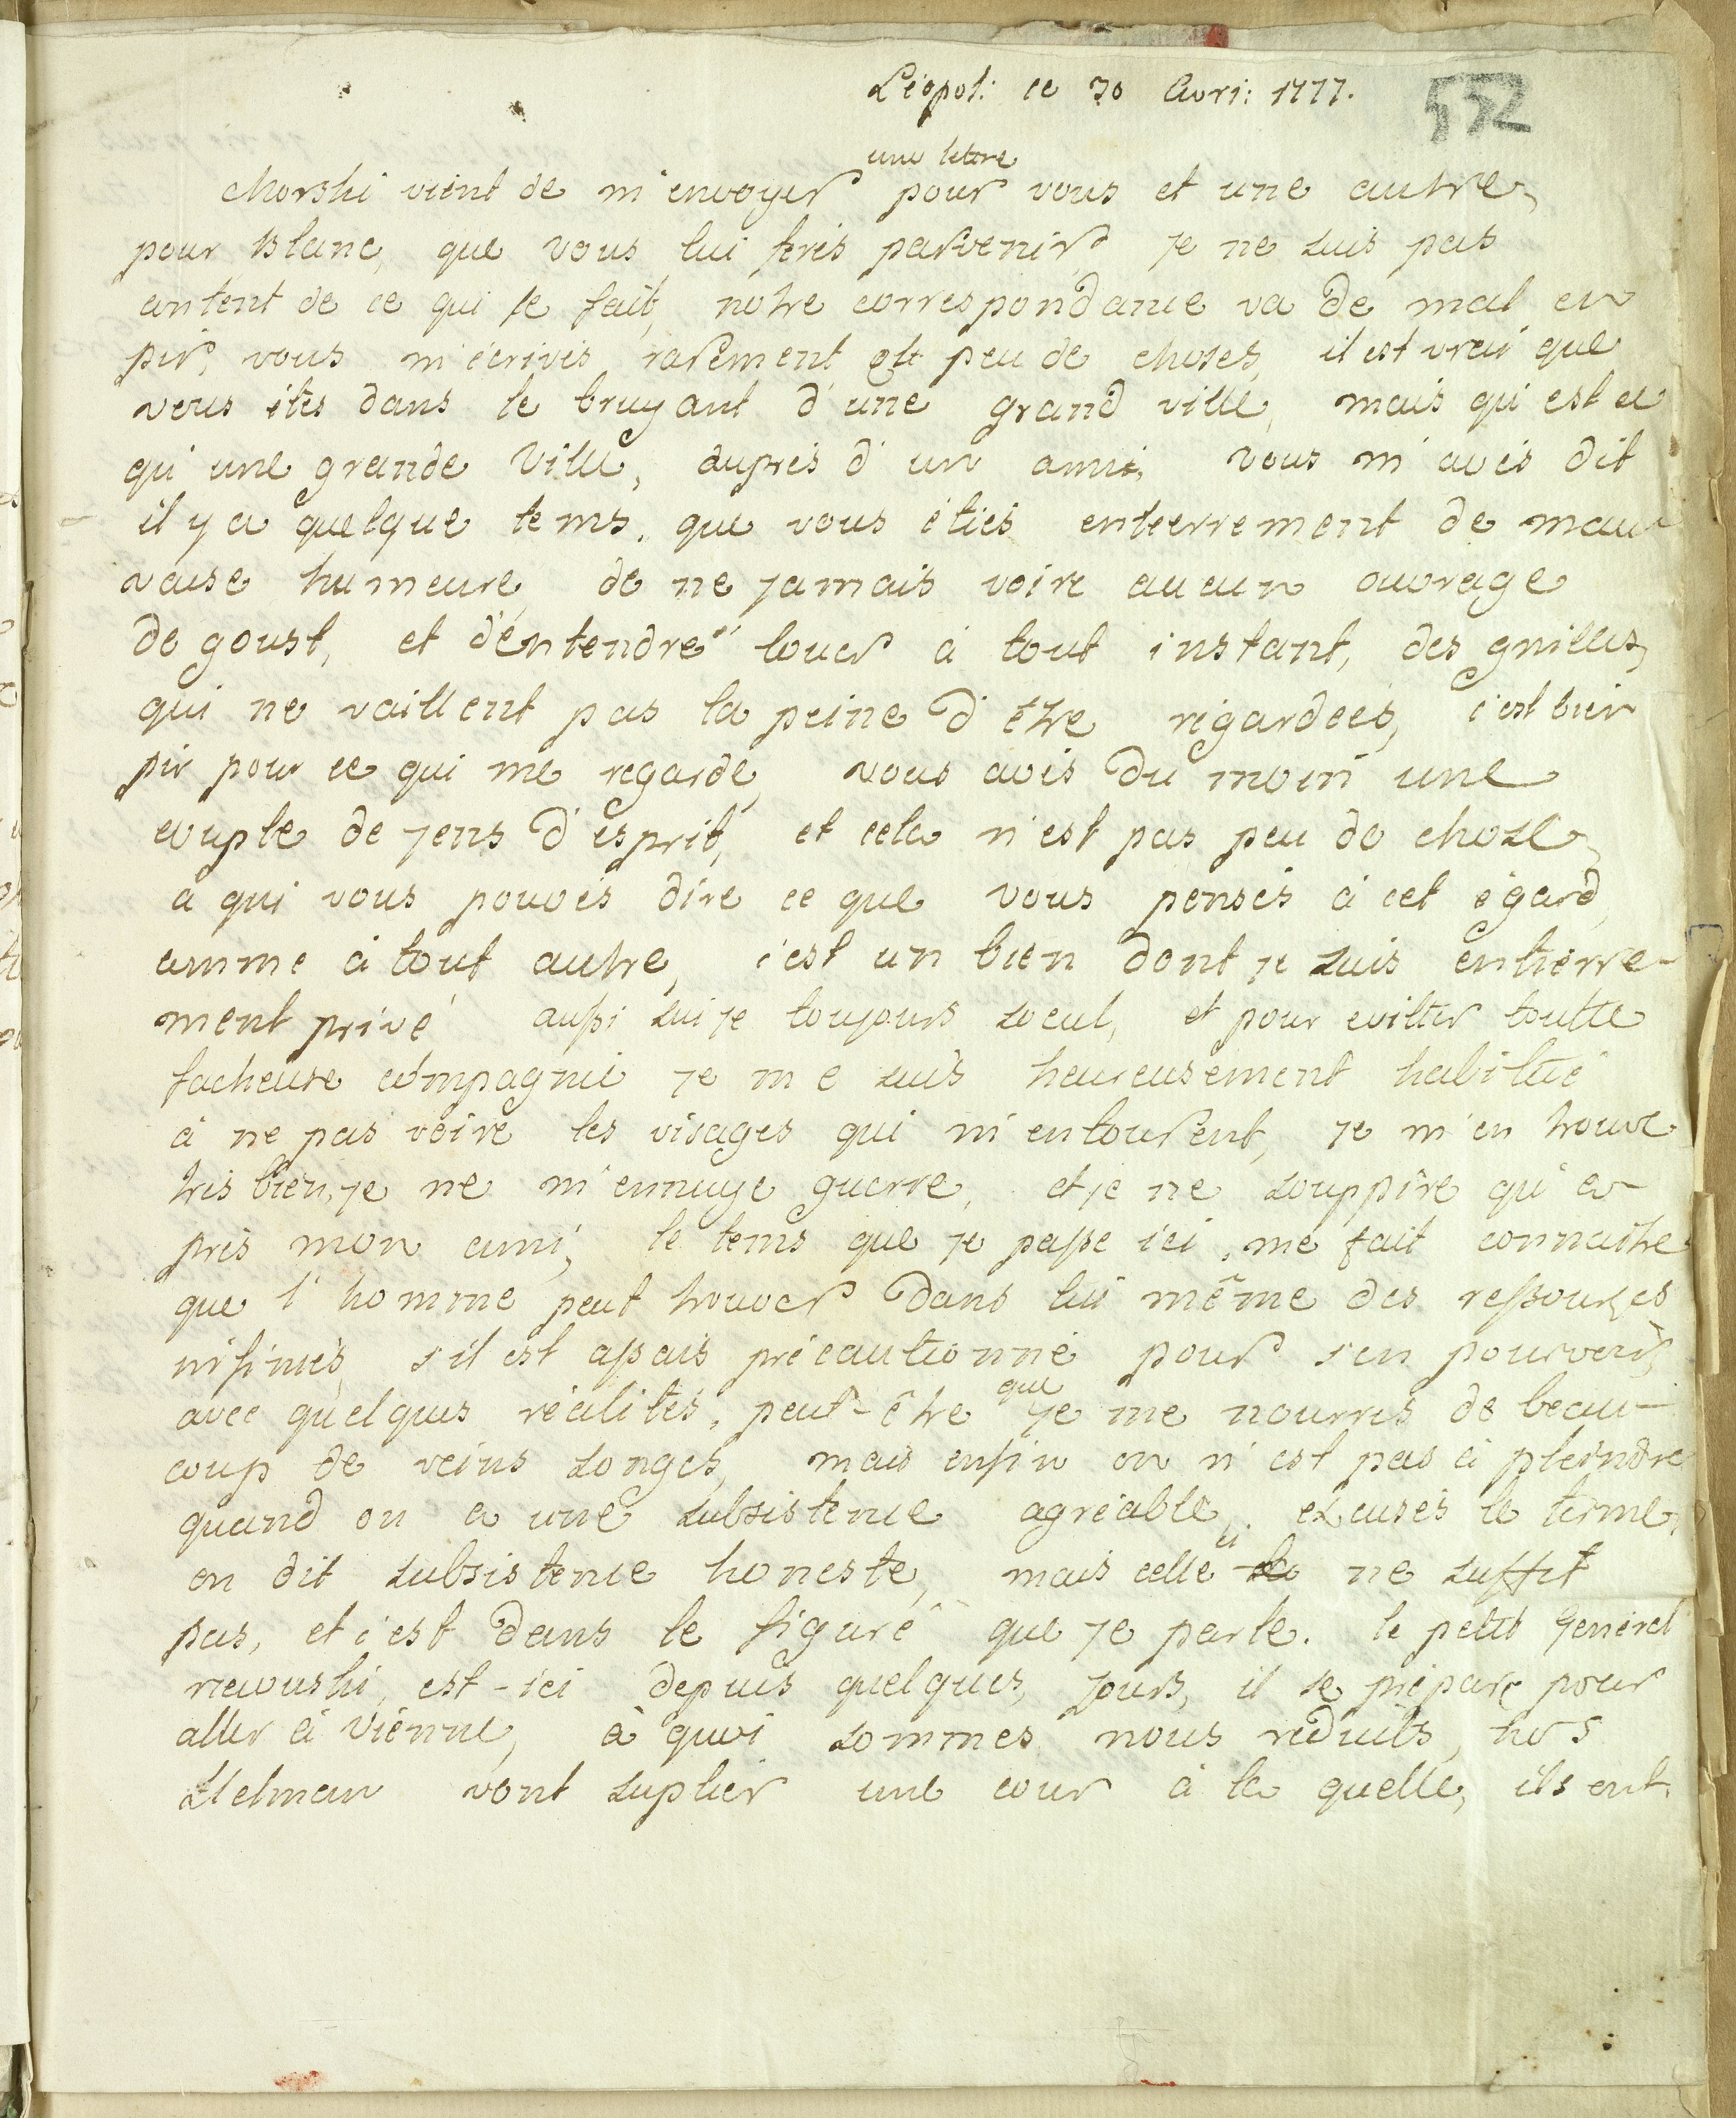 Léopol: ce 30 Avri: 1777.
552
une lettre
Morski vient de m'envoyer pour vous et une autre,
pour Blanc, que vous lui ferés parvenir, je ne suis pas
content de ce qui se fait, notre correspondance va de mal en
pir, vous m'écrivés rarement et peu de choses, il est vrai que
vous étes dans le bruyant d'une grand ville, mais qu'est ce
qu'une grande Ville, auprés d'un ami, vous m'avés dit
il y a quelque tems, que vous étiés enterrement de mau
vaise humeure, de ne jamais voire aucun ouvrage
de goust, et d'entendre louer à tout instant, des gnilles,
qui ne vaillent pas la peine d'être régardées, c'est bien
pir pour ce qui me regarde, vous avés du moin une
couple de jens d'ésprit, et cela n'est pas peu de chose,
a qui vous pouvés dire ce que vous pensés à cet égard,
comme à tout autre, c'est un bien dont je suis entierre-
ment privé aussi sui je toujours soeul, et pour evitter toutte
facheuse compagnie je me suis heureusement habitué
à ne pas voire les visages qui m'entourent, je m'en trouve
trés bien, je ne m'ennuye guerre, et je ne souppire qu'a-
prés mon ami, le tems que je passe ici, me fait connaitre
que l'homme peut trouver dans lui même des ressources
infinies, s'il est assais précautionné pour s'en pourvoir,
que
avec quelques réalités, peut-être je me nourris de beau-
coup de veins songes, mais enfin on n'est pas à pleindre
quand on a une subsistence agréable, excusés le terme,
ci
on dit subsistence honeste, mais celle la ne suffit
pas, et c'est dans le figuré que je parle. le petit General
rzewuski, est-ici depuis quelques jours, il se prépare pour
aller à Vienne, à quoi sommes nous réduits, nos
Hetman vont suplier une cour à la quelle, ils ont